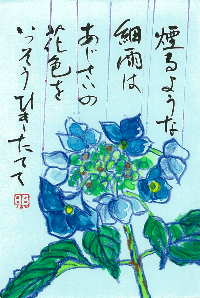 煙るような
細雨は
あじさいの
花色を
いっそうひきたてて